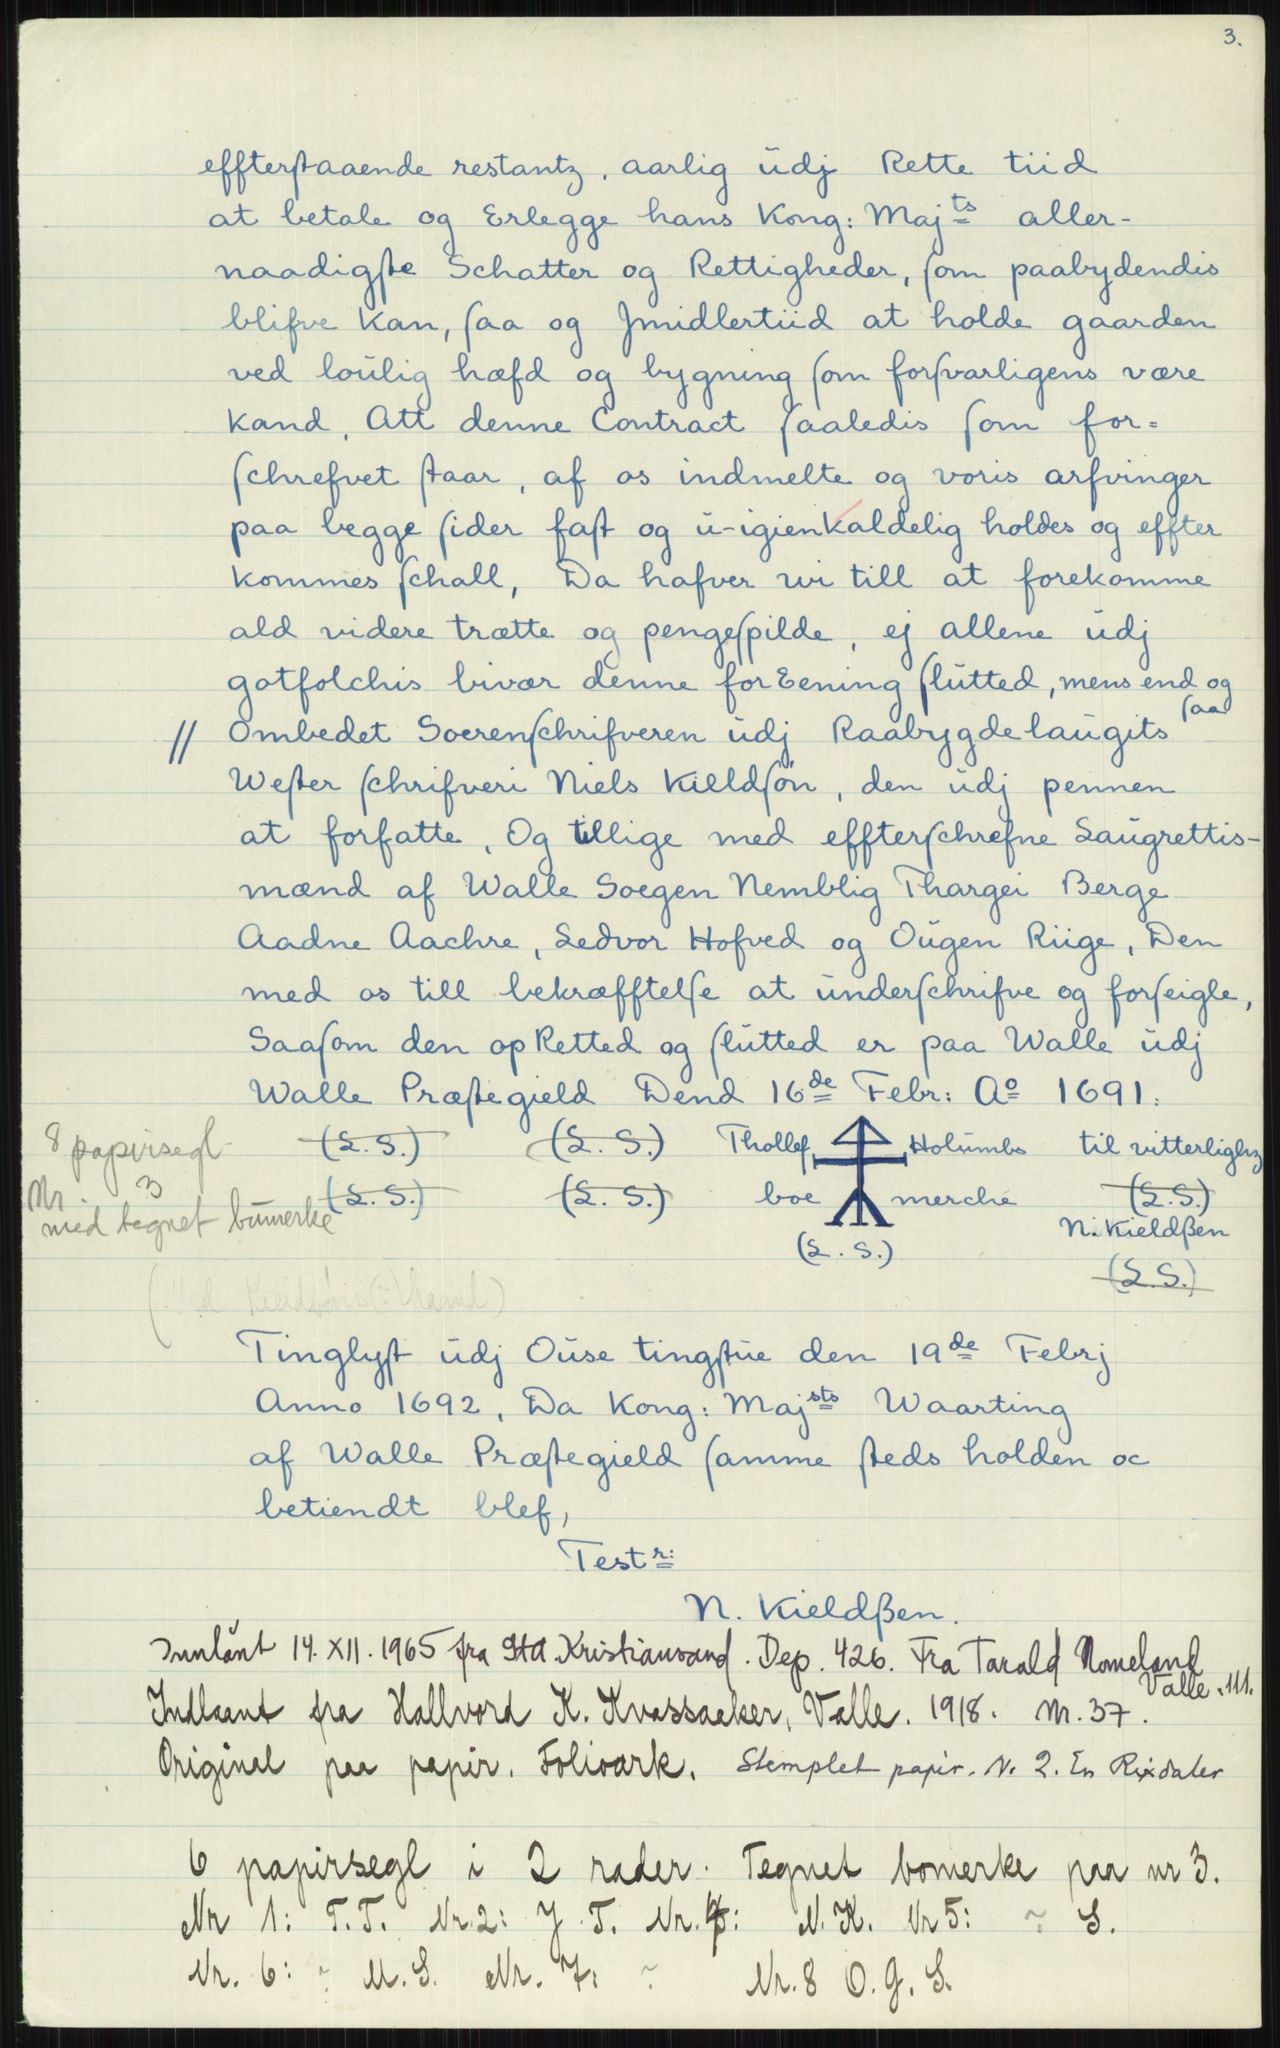 3.
effterstaaende restantz, aarlig udj Rette tiid
at betale og Erlegge hans Kong: Majts aller-
naadigste Schatter og Rettigheder, som paabydendis
blifve kan, saa og Jmidlertiid at holde gaarden
ved loulig hæfd og bygning som forsvarligens være
kand, Att denne Contract saaledis som for=
schrefvet staar, af os indmelte og voris arfvinger
paa begge sider fast og u-igienkaldelig holdes og effter
kommes schall, Da hafver wi till at forekomme
ald videre trætte og pengespilde, ej allene udj
gotfolchis bivær denne forEening slutted, mens end og
saa
// Ombedet Soerenschrifveren udj Raabygdelaugits
Wester schrifveri Niels Killdsøn, den udj pennen
at forfatte, Og tillige med effterschrefne Laugrettis-
mænd af Walle Soegen Nemblig Thargei Berge
Aadne Aachre, Sedvor Hofved og Ougen Riige, Den
med os till bekræfftelse at underschrifve og forseigle,
Saasom den opRetted og slutted er paa Walle udj
Walle Præstegield Dend 16de Febr: Ao 1691.
8 papirsegl (L.S.) (L.S.) Thollef Holumbs til vitterlighz
Nr 3 (L.S.) (L.S.) boe merche (L.S.)
med tegnet bumerke N. Kieldßen
(L.S.)
(L.S.)
Tinglyst udj Ouse tingstue den 19de Febrj
Anno 1692, Da Kong: Majsts Waarting
af Walle Præstegield samme steds holden oc
betiendt blef,
Testr:
N. Kieldßen.
Innlånt 14.XII.1965 fra Sta Kristiansand. Dep. 426. Fra Tarald Nomeland
Valle. 111.
Indlaant fra Hallvord K. Kvassaaker, Valle. 1918. Nr. 37.
Original paa papir. Folioark. Stemplet papir. N. 2. En Rixdaler
6 papirsegl i 2 rader. Tegnet bomerke paa nr 3.
Nr 1: T.T. Nr.2: J.T. Nr.4: N.K. Nr 5: ~ S.
Nr. 6: ~ M.S. Nr. 7: ~ Nr. 8 O.G.S.